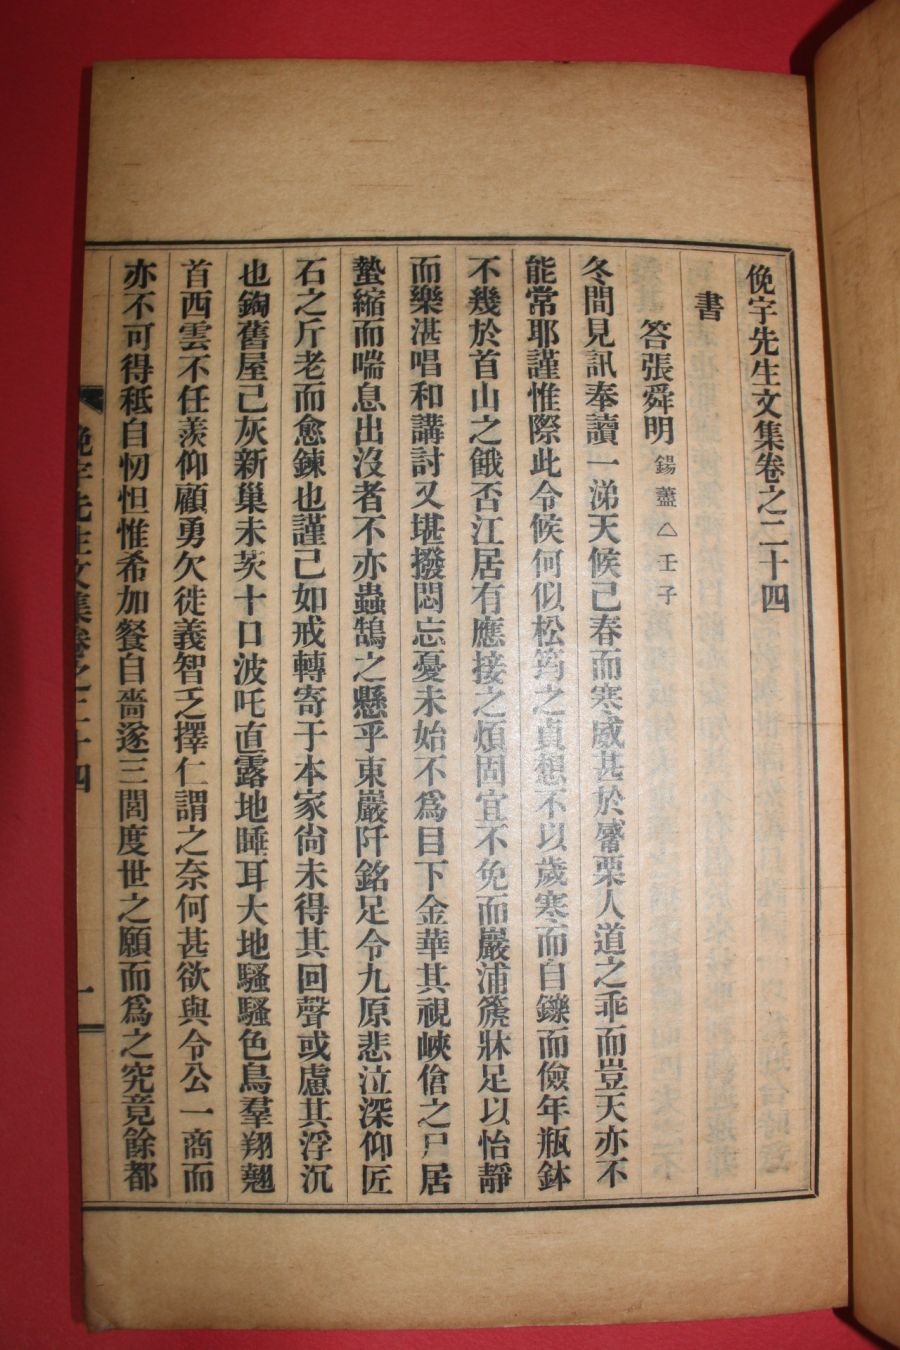 俛宇先生文集卷之二十四
書
答張舜明 錫藎 △ 壬子
冬間見訊奉讀一涕天候已春而寒威甚於觱栗人道之乖而豈天亦不
能常耶謹惟際此令候何似松筠之貞想不以歲寒而自鑠而儉年瓶鉢
不幾於首山之餓否江居有應接之煩固宜不免而巖浦篪牀足以怡靜
而樂湛唱和講討又堪撥悶忘憂未始不爲目下金華其視峽傖之尸居
蟄縮而喘息出沒者不亦蟲鵠之懸乎東巖阡銘足令九原悲泣深仰匠
石之斤老而愈鍊也謹已如戒轉寄于本家尙未得其回聲或慮其浮沉
也鋾舊屋已灰新巢未茨十口波吒直露地睡耳大地騷騷色鳥羣翔翹
首西雲不任羨仰顧勇欠徙義智乏擇仁謂之奈何甚欲與令公一商而
亦不可得秪自忉怛惟希加餐自嗇遂三閭度世之願而爲之究竟餘都
俛宇先生文集卷之二十四
一